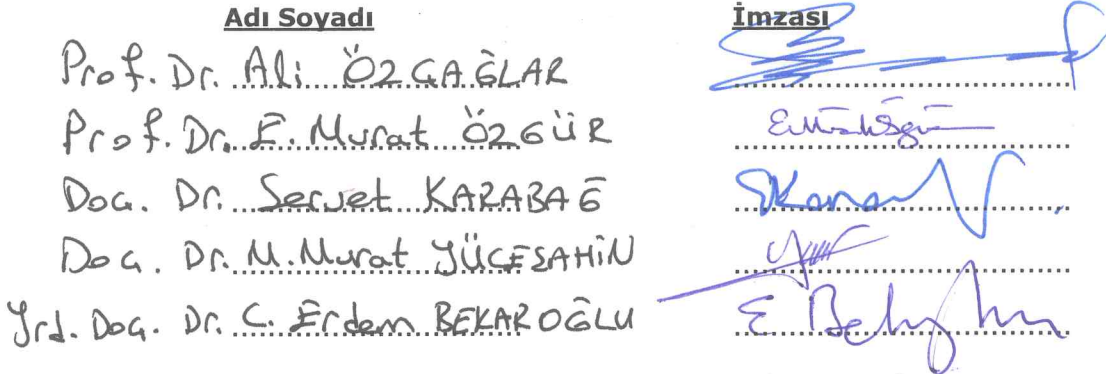 Adı Soyadı İmzası
Prof. Dr. Ali ÖZÇAĞLAR
Prof. Dr. E. Murat ÖZGÜR
Doç. Dr. Servet KARABAĞ
Doç. Dr. M. Murat YÜCEŞAHİN
Yrd. Doç. Dr. C. Erdem BEKAROĞLU